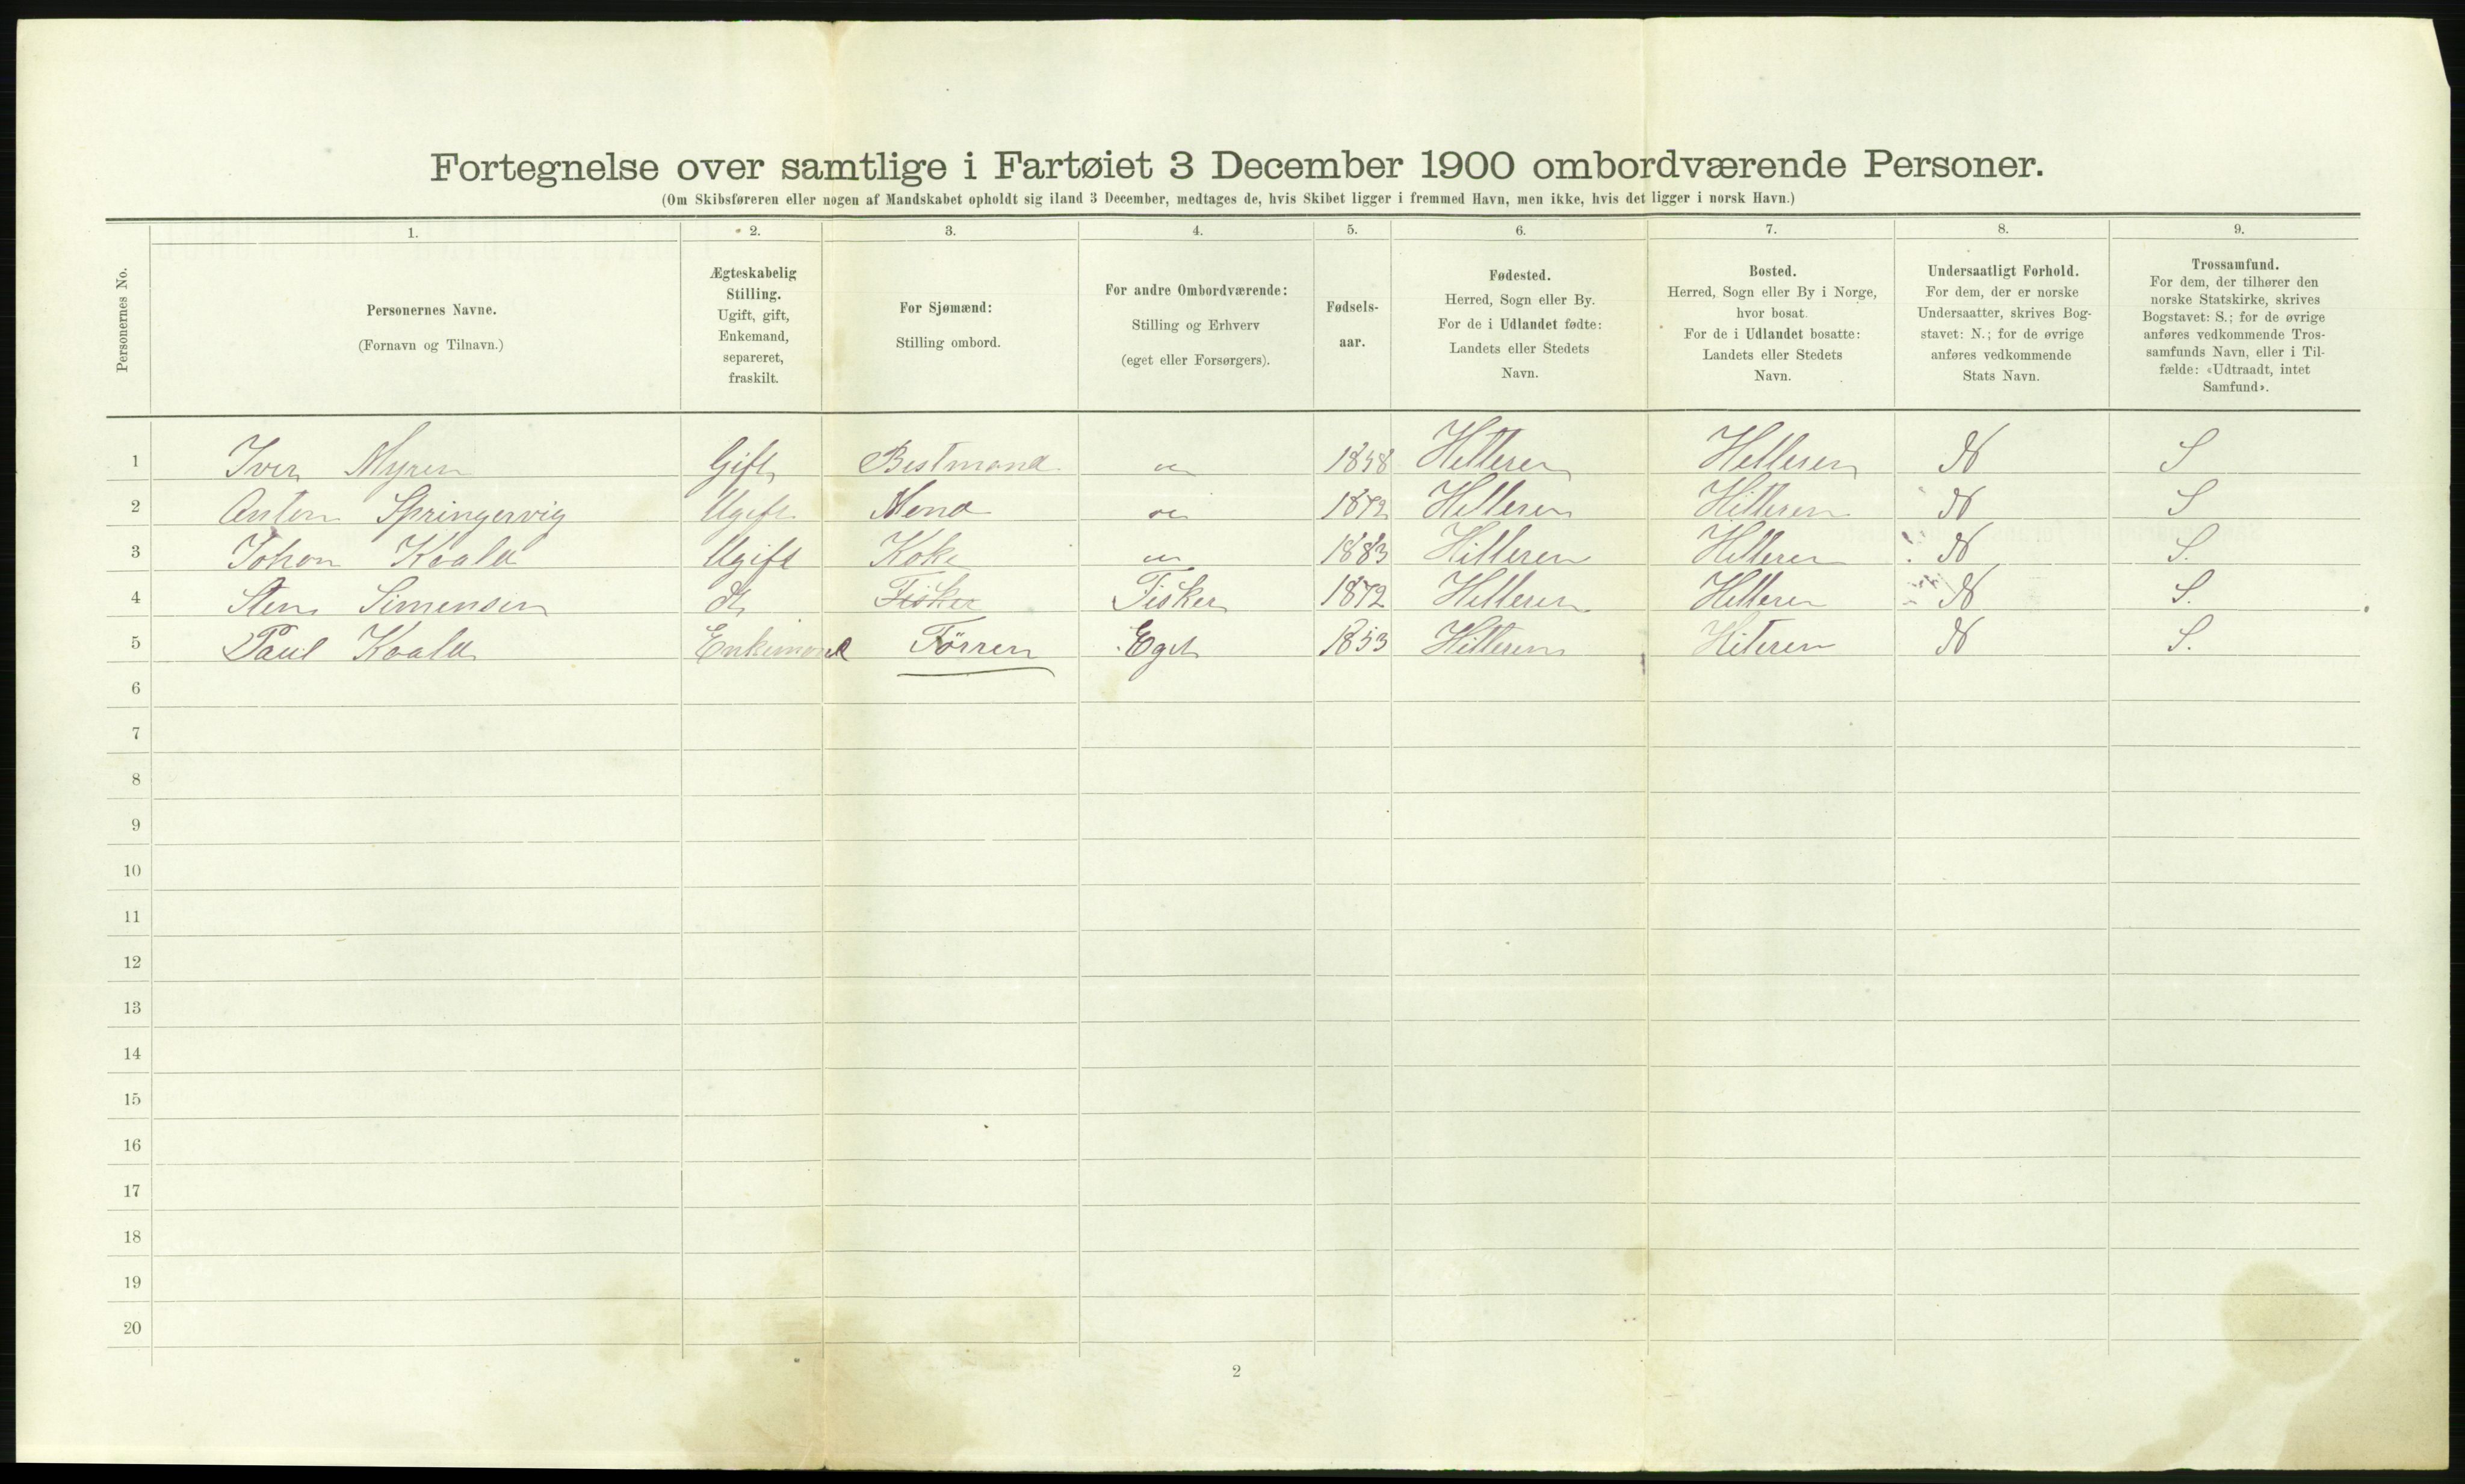 Fortegnelse over samtlige i Fartøiet 3 December 1900 ombordværende Personer.
(Om Skibsføreren eller nogen af Mandskabet opholdt sig iland 3 December, medtages de, hvis Skibet ligger i fremmed Havn, men ikke, hvis det ligger i norsk Havn.)
Personernes No.
1.
Personernes Navne.
(Fornavn og Tilnavn.)
2.
Ægteskabelig
Stilling.
Ugift, gift,
Enkemand,
separeret,
fraskilt.
3.
For Sjømænd:
Stilling ombord.
4.
For andre Ombordværende:
Stilling og Erhverv
(eget eller Forsørgers).
5.
Fødsels-
aar.
6.
Fødested.
Herred, Sogn eller By.
For de i Udlandet fødte:
Landets eller Stedets
Navn.
7.
Bosted.
Herred, Sogn eller By i Norge,
hvor bosat.
For de i Udlandet bosatte:
Landets eller Stedets
Navn.
8.
Undersaatligt Forhold.
For dem, der er norske
Undersaatter, skrives Bog-
stavet: N.; for de øvrige
anføres vedkommende
Stats Navn.
9.
Trossamfund.
For dem, der tilhører den
norske Statskirke, skrives
Bogstavet: S.; for de øvrige
anføres vedkommende Tros-
samfunds Navn, eller i Til-
fælde: «Udtraadt, intet
Samfund».
1 Iver Myren Gift Bestmand Hitteren Hitteren N S
2 Anton Springervig Ugift 1872 Hitteren Hitteren N S
3 Johan Kvalø Ugift Kok 1883 Hitteren Hitteren N S.
4 Sten Simensen Fisker Fisker 1872 Hitteren Hitteren N S.
5 Paul Kvalø Enkemand Førren Eget 1853 Hitteren Hiteren N S.
6
7
8
9
10
11
12
13
14
15
16
17
18
19
20
2